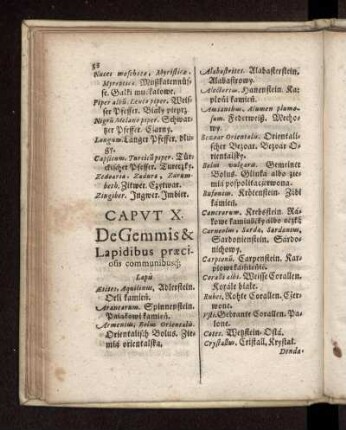 58
Nuces moschatæ, Myristicæ,
Myrepticæ. Muschkatennüs-
se. Gałki muszkatowe.
Piper albū. Leuco piper. Weis-
ser Pfeffer. Biały pieprz.
Nigrū Melano piper. Schwar-
tzer Pfeffer. Czarny.
Longum. Langer Pfeffer. dłu-
gi.
Capsicum. Turcicū piper. Tür-
ckischer Pfeffer. Turetzky.
Zedoaria, Zadura, Zarum-
beth. Zitwer. Czytwar.
Zingiber. Ingwer. Imbier.
CAPVT X.
De Gemmis &
Lapidibus præci-
osis communibusq;
Lapis
Ætites, Aquilinus, Adlerstein.
Orli kamień.
Aranearum. Spinnenstein.
Paiąkowi kamień.
Armenius, Bolus Orientalis
Orientalisch Bolus. Zie-
mia orientalska,
Alabastrites. Alabasterstein.
Alabastrowy.
Alectorius. Hanenstein. Ka-
płoni kamień.
Amiantbus. Alumen pluma-
sum. Federweiß.
Bezoar Orientalis. Orientali-
scher Bezoar. Bezoar O-
rientalsky.
Bolus vulgaris. Gemeiner
Bolus. Glinka albo zie-
mia pospolita czerwona.
Bufonius. Krötenstein. Żabi
kamień.
Cancrorum. Krebsstein. Ra-
kowe kamiuszky albo oczka
Carneolus, Sarda, Sardonius,
Sardonierstein, Sardo-
nichowy.
Carpionū. Carpenstein. Kar-
piowe kamuszki.
Corallū albū. Weisse Corallen.
Korale białe.
Rubri, Rohte Corallen. Czer-
wone.
Vsti. Gebrante Corallen. Pa-
lone.
Cotes. Wetzstein. Osła.
Crystallus. Cristall. Krystał.
Denda-